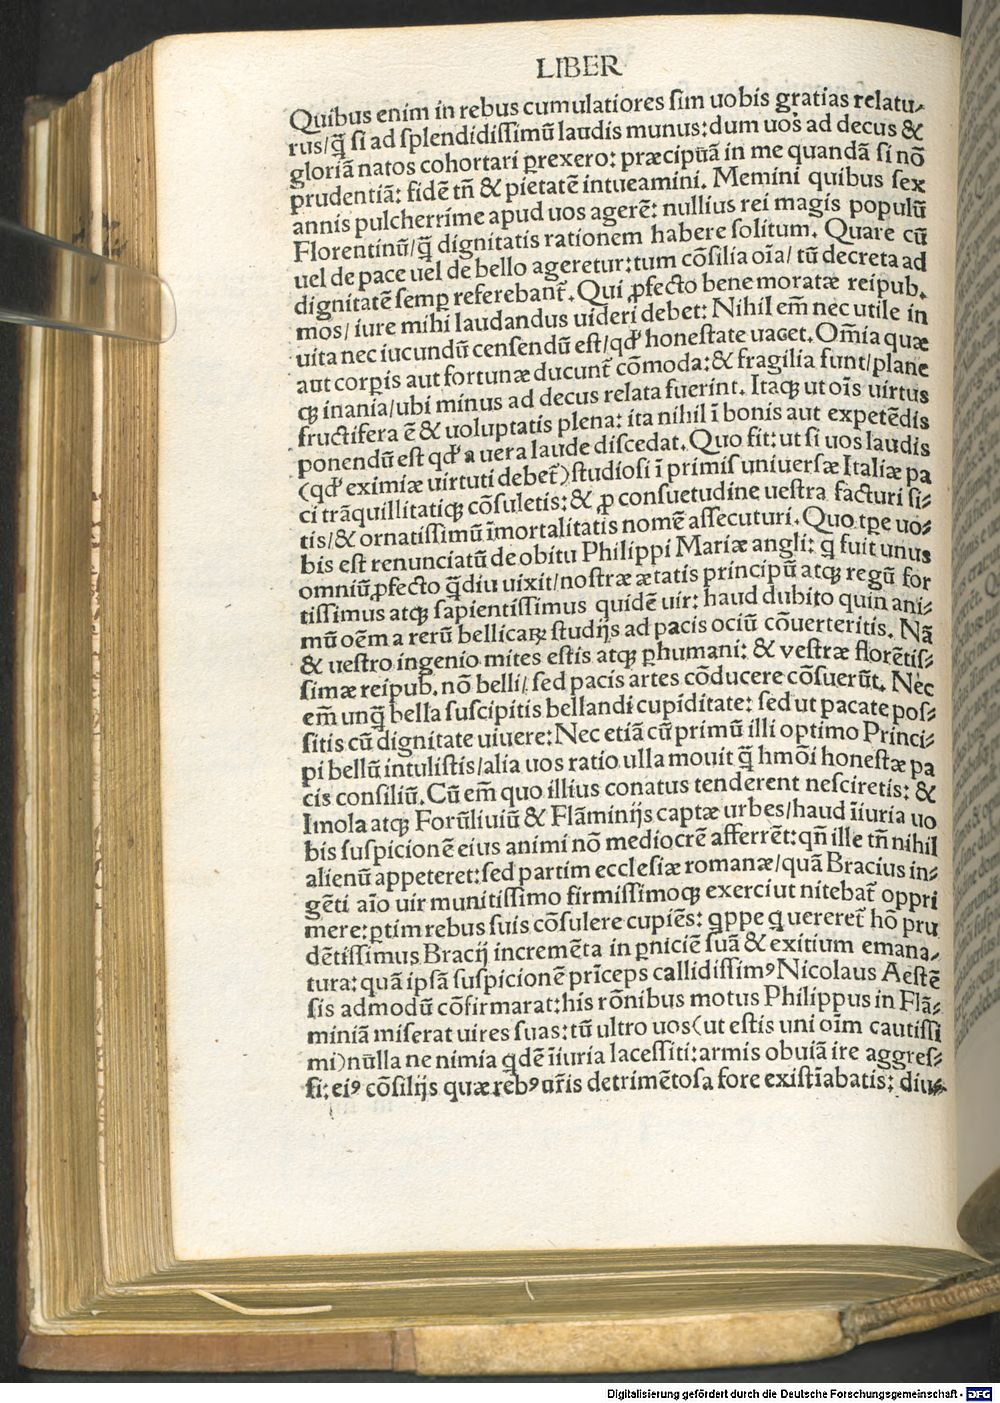 LIBER
Quibus enim in rebus cumulatiores sim uobis gratias relatu⸗
rus/q̃ si ad splendidissimũ laudis munus: dum uos ad decus &
gloriã natos cohortari ꝑrexero: præcipuã in me quandã si nõ
prudentiã: fidẽ tñ & pietatẽ intueamini. Memini quibus sex
annis pulcherrime apud uos agerẽ: nullius rei magis populũ
Florentinũ/q̃ dignitatis rationem habere solitum. Quare cũ
uel de pace uel de bello ageretur: tum cõsilia oĩa/ tũ decreta ad
dignitatẽ semꝑ referebant̃. Qui ꝓfecto bene moratæ reipub.
mos/ iure mihi laudandus uideri debet: Nihil em̃ nec utile in
uita nec iucundũ censendũ est/qđ honestate uacet. Om̃ia quæ
aut corꝑis aut fortunæ ducunt̃ cõmoda: & fragilia sunt/plane
qꝫ inania/ubi minus ad decus relata fuerint. Itaqꝫ ut oĩs uirtus
fructifera ẽ & uoluptatis plena: ita nihil ĩ bonis aut expetẽdis
ponendũ est qđ a uera laude discedat. Quo fit: ut si uos laudis
(qđ eximiæ uirtuti debet̃) studiosi ĩ primis uniuersæ Italiæ pa
ci trãquillitatiqꝫ cõsuletis: & ꝓ consuetudine uestra facturi si⸗
tis/& ornatissimũ ĩmortalitatis nomẽ assecuturi. Quo tꝑe uo⸗
bis est renunciatũ de obitu Philippi Mariæ angli: q̃ fuit unus
omniũ ꝓfecto q̃diu uixit/nostræ ætatis principũ atqꝫ regũ for
tissimus atqꝫ sapientissimus quidẽ uir: haud dubito quin ani⸗
mũ oẽm a rerũ bellicaꝝ studijs ad pacis ociũ cõuerteritis. Nã
& uestro ingenio mites estis atqꝫ ꝑhumani: & vestræ florẽtis⸗
simæ reipub. nõ belli/ sed pacis artes cõducere cõsuerũt. Nec
em̃ unq̃ bella suscipitis bellandi cupiditate: sed ut pacate pos⸗
sitis cũ dignitate uiuere: Nec etiã cũ primũ illi optimo Princi⸗
pi bellũ intulistis/alia uos ratio ulla mouit q̃ hmõi honestæ pa
cis consiliũ. Cũ em̃ quo illius conatus tenderent nesciretis: &
Imola atqꝫ Forũliuiũ & Flãminijs captæ urbes/haud ĩiuria uo
bis suspicionẽ eius animi nõ mediocrẽ afferrẽt: qñ ille tñ nihil
alienũ appeteret: sed partim ecclesiæ romanæ/quã Bracius in⸗
gẽti aĩo uir munitissimo firmissimoqꝫ exerciut nitebat̃ oppri
mere: ꝑtim rebus suis cõsulere cupiẽs: qppe q uereret̃ hõ pru
dẽtissimus Bracij incremẽta in ꝑniciẽ suã & exitium emana⸗
tura: quã ipsã suspicionẽ prĩceps callidissimꝰ Nicolaus Aestẽ
sis admodũ cõfirmarat: his rõnibus motus Philippus in Flã⸗
miniã miserat uires suas: tũ ultro uos (ut estis uni oĩm cautissi
mi) nũlla ne nimia qdẽ ĩiuria lacessiti: armis obuiã ire aggres⸗
si: eiꝰ cõsilijs quæ rebꝰ ur̃is detrimẽtosa fore existĩabatis: diu⸗
Digitalisierung gefördert durch die Deutsche Forschungsgemeinschaft - DFG